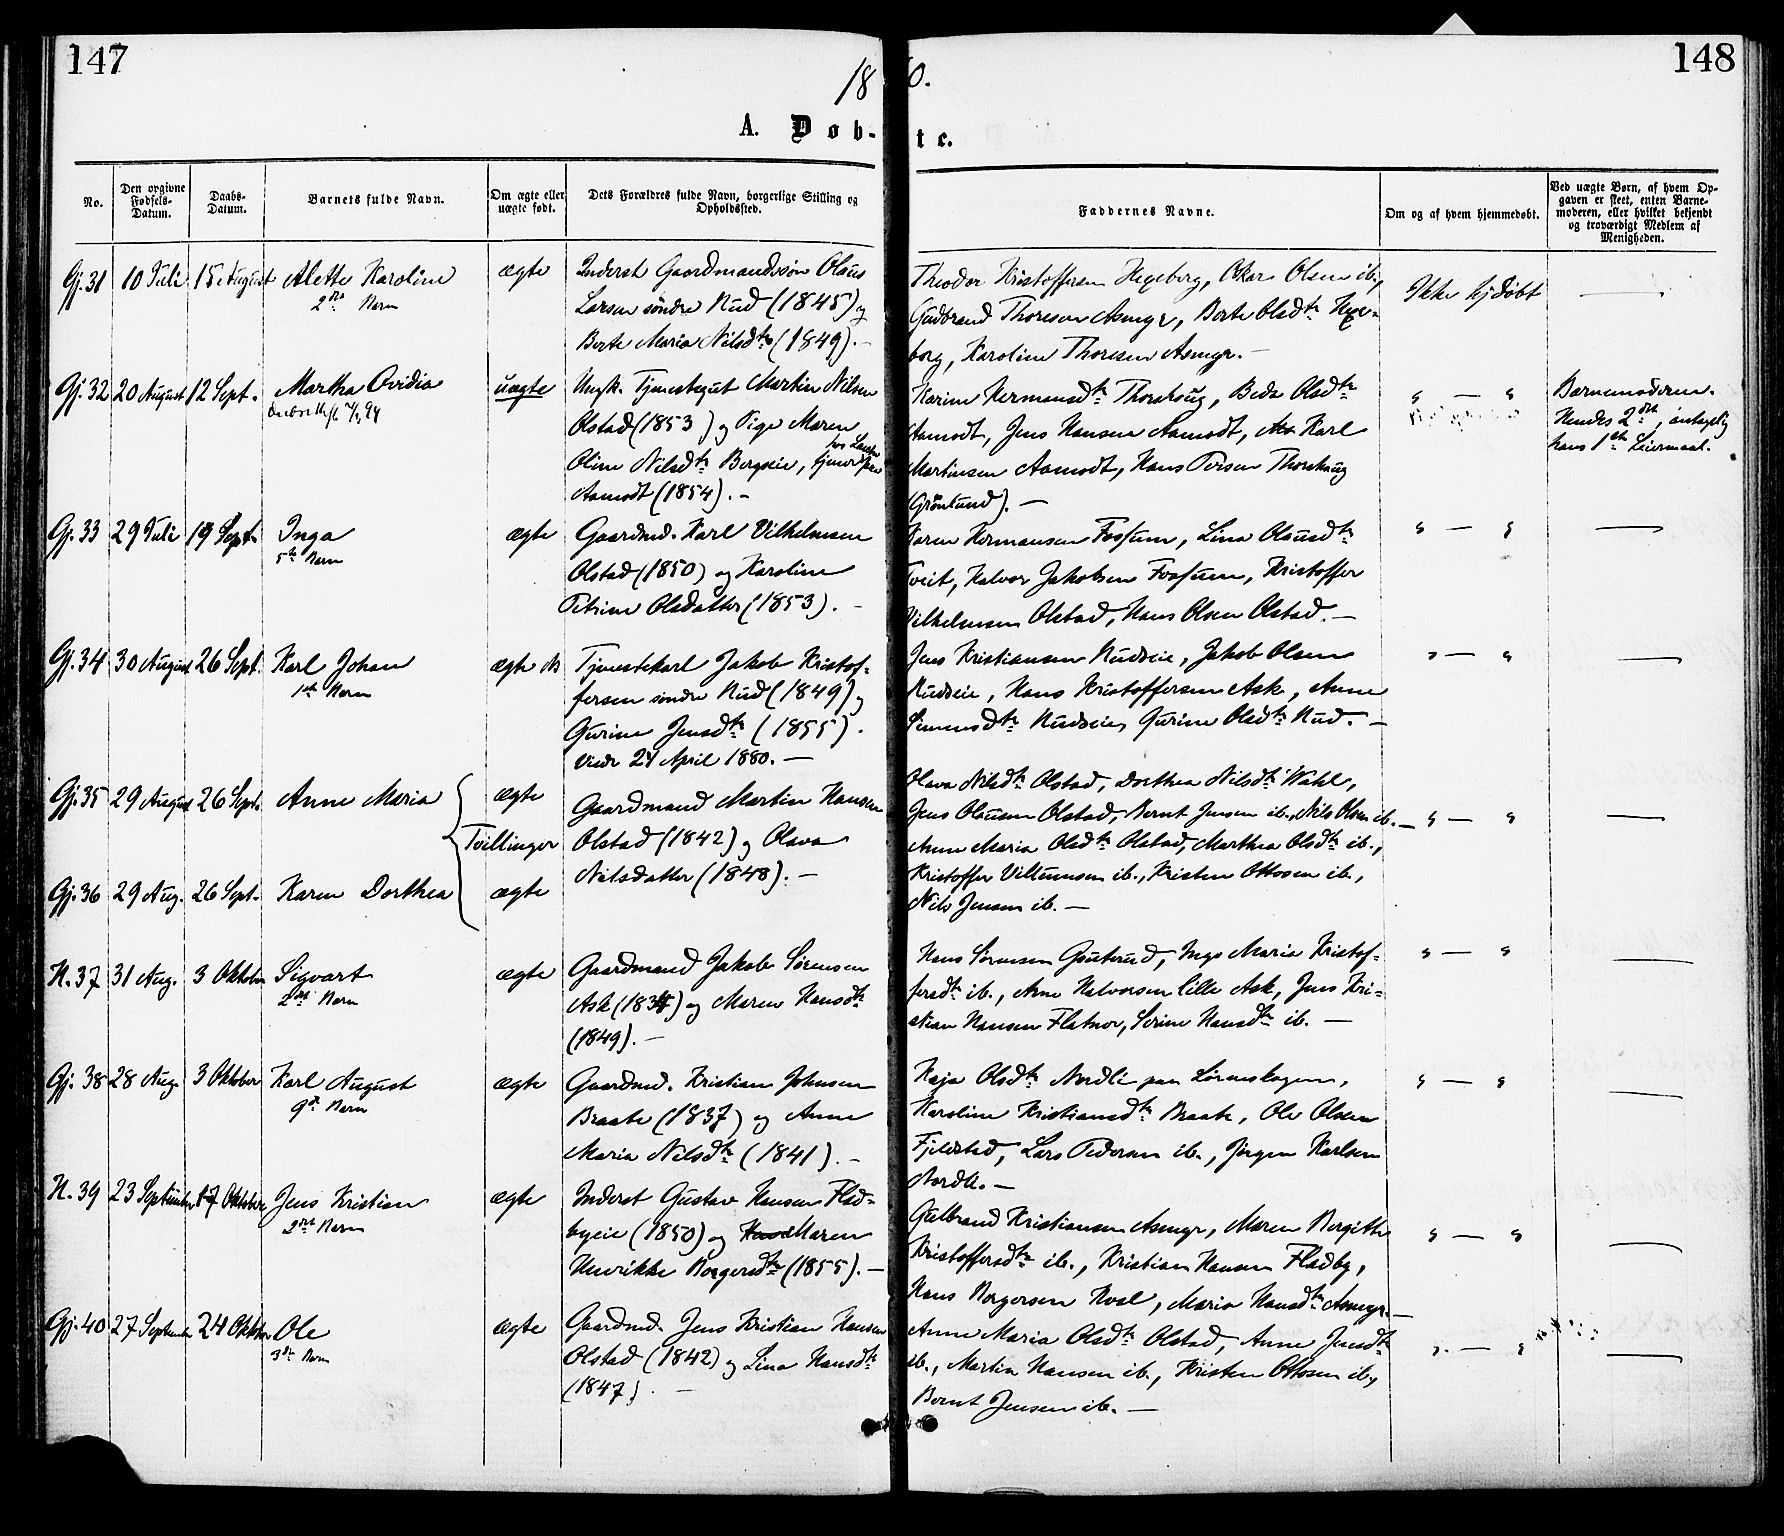 147
148
18 0.
A. Døb- te.
No.
Den opgivne Fødsels-Datum.
Daabs-Datum.
Barnets fulde Navn.
Om ægte eller uægte født.
Dets Forældres fulde Navn, borgerlige Stilling og Opholdssted.
Faddernes Navne.
Om og af hvem hjemmedøbt.
Ved uægte Børn, af hvem Op-
gaven er skeet, enten Barne-
moderen, eller hvilket bekjendt
og troværdigt Medlem af
Menigheden.
Gj. 31 10 Juli 15 August Alette Karoline ægte
2det Barn
Inderst Gaardmandssøn Olaus
Larsen søndre Rud (1845) og
Berte Maria Nilsdtr (1849). —
Theodor Kristoffersen Hexeberg, Oskar Olsen ib.,
Gudbrand Thoresen Asmyr, Berte Olsdtr Hexe-
berg, Karoline Thoresen Asmyr. —
Ikke hjdøbt —
Gj. 32 20 August 12 Sept. Martha Ovidia uægte
Ungk. Tjenestegut Martin Nilsen
Olstad (1853) og Pige Maren
Oline Nilsdtr Bergseie, tjener hos
Aamodt (1854). —
Karine Hermansdtr Thorshaug, Beda Olsdtr
Aamodt, Jens Hansen Aamodt, Karl
Martinsen Aamodt, Hans Persen Thorshaug
(Grønlund). —
" — "
Barnemoderen.
Hendes 2det, antagelig
hans 1ste Leiermaal.
Gj. 33 29 Juli 19 Sept. Inga ægte
5te Barn
Gaardmd. Karl Vilhelmsen
Olstad (1850) og Karoline
Petrine Olsdatter (1853). —
Karen Hermansen Fossum, Lina Olausdtr
Tveit, Halvor Jakobsen Fossum, Kristoffer
Vilhelmsen Olstad, Hans Olsen Olstad. —
" — " —
Gj. 34 30 August 26 Sept. Karl Johan ægte
1ste Barn
Tjenestekarl Jakob Kristof-
fersen søndre Rud (1849) og
Gurine Jensdtr (1855).
Viede 24 April 1880. —
Jens Kristiansen Rudseie, Jakob Olsen
Rudseie, Hans Kristoffersen Ask, Anne
Simensdtr Rudseie, Gurine Olsdtr Rud. —
" — " —
Gj. 35 29 August 26 Sept. Anne Maria ægte
Tvillinger
Gj. 36 29 Aug. 26 Sept. Karen Dorthea ægte
Gaardmand Martin Hansen
Olstad (1842) og Olava
Nilsdatter (1848). —
Olava Nilsdtr Olstad, Dorthea Nilsdtr Wahl,
Jens Olausen Olstad, Bernt Jensen ib., Nils Olsen ib. —
Anne Maria Olsdtr Olstad, Marthea Olsdtr ib.,
Kristoffer Villumsen ib., Kristen Ottosen ib.,
Nils Jensen ib. —
" — " —
N. 37 31 Aug. 3 Oktober Sigvart ægte
2det Barn
Gaardmand Jakob Sørensen
Ask (183) og Maren Hansdtr
(1849). —
Hans Sørensen Gauterud, Inga Maria Kristof-
fersdtr ib., Arne Halvorsen lille Ask, Jens Kri-
stian Hansen Flatnor, Serine Hansdtr ib. —
" — " —
Gj. 38 28 Aug. 3 Oktober Karl August ægte
9de Barn
Gaardmd. Kristian Johnsen
Braate (1837) og Anne
Maria Nilsdtr (1841). —
Kaja Olsdtr Nordli paa Lørenskogen,
Karoline Kristiansdtr Braate, Ole Olsen
Fjeldstad, Lars Pedersen ib., Jørgen Karlsen
Nordli. —
" — " —
N. 39 23 September 17 Oktober Jens Kristian ægte
2det Barn
Inderst Gustav Hansen Flad-
byeie (1850) og Maren
Henrikke Borgersdtr (1855). —
Gulbrand Kristiansen Asmyr, Maren Bergitte
Kristoffersdtr ib., Kristian Hansen Fladby,
Hans Borgersen Hval, Maria Hansdtr Asmyr. —
" — " —
Gj. 40 27 September 24 Oktober Ole ægte
3die Barn
Gaardmd. Jens Kristian Hansen
Olstad (1842) og Lina Hansdtr
(1847). —
Anne Maria Olsdtr Olstad, Anne Jensdtr
ib., Martin Hansen ib., Kristen Ottosen ib.,
Bernt Jensen ib. —
" — " —